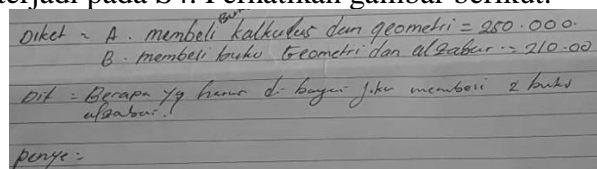 terjadi pada S4. Perhatikan gambar berikut:
Diket = A. membeli buku kalkulus dan geometri = 250.000.
B. membeli buku Geometri dan aljabar = 210.00
Dit = Berapa yg harus di bayar jika membeli 2 buku
aljabar.!
penye =